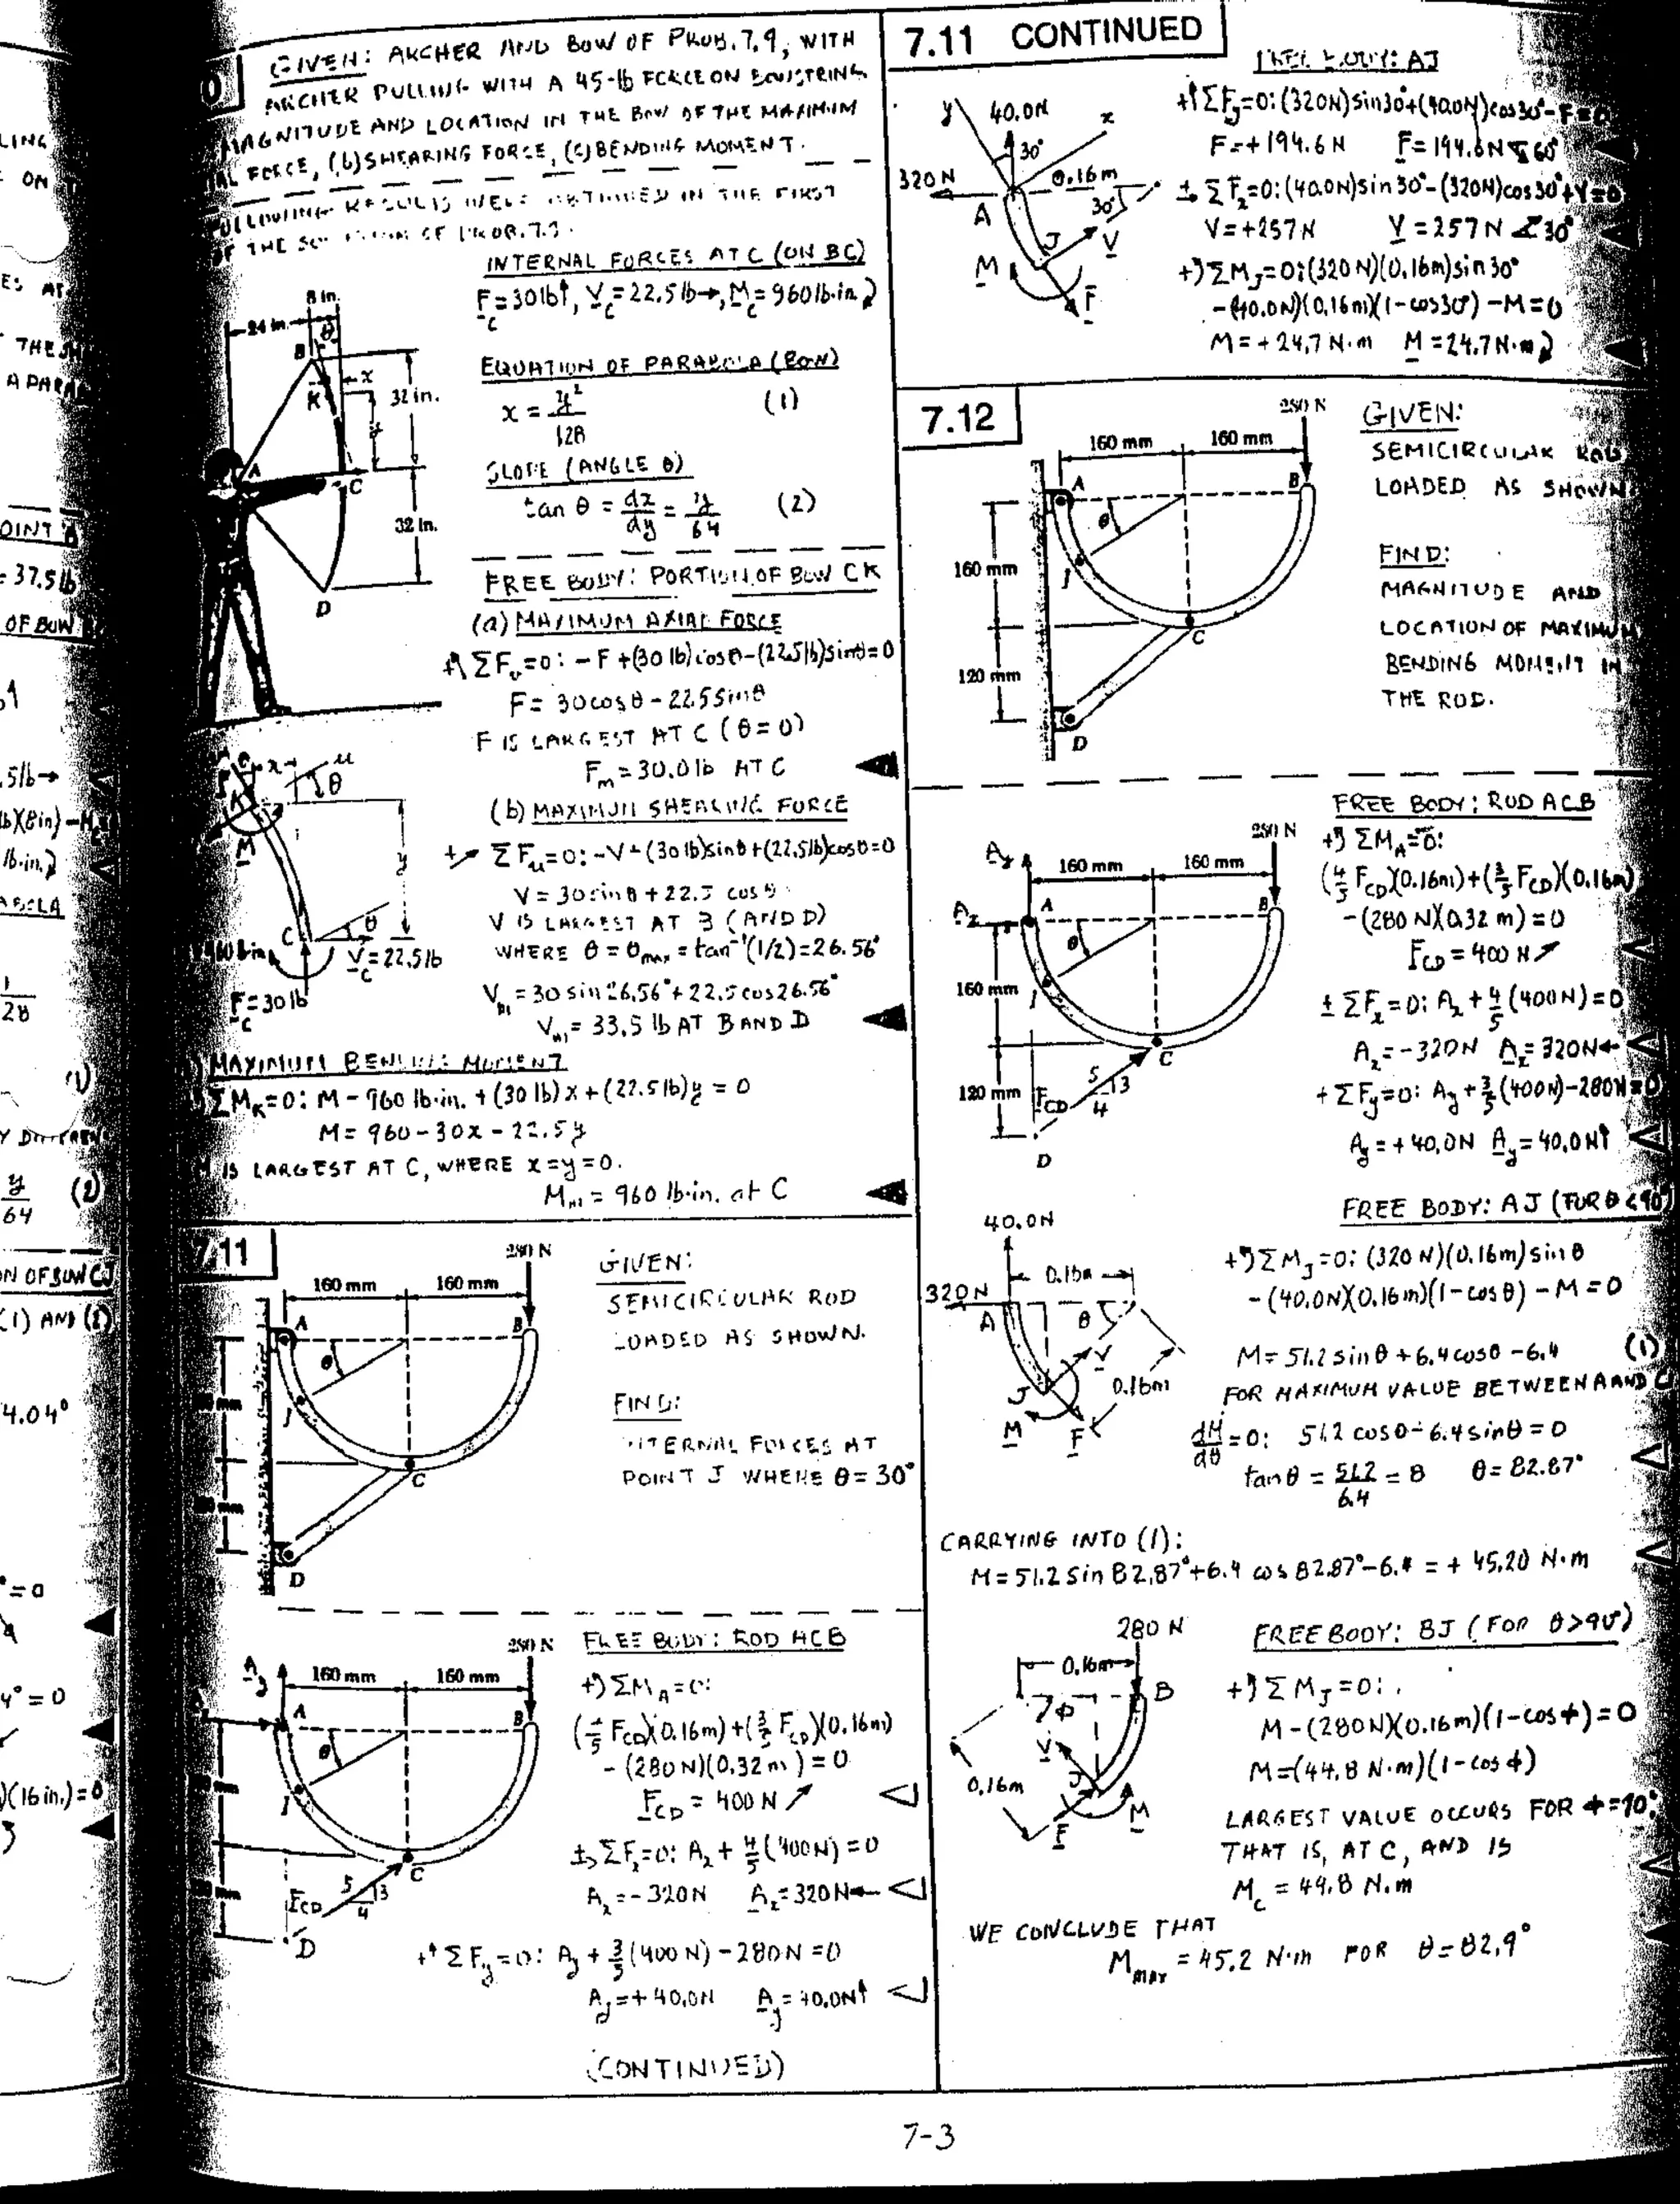 LING
ON
ES AT
THE
A PARA
POINT B
= 37.5 lb
OF BOW
.5 lb→
lb)(8in)-M
lb·in.)
ABOLA
1
28
(1)
Y DIFFEREN
y
64
(2)
ON OF BOW CJ
(1) AND (2)
4.04°
°=0
4°=0
)(16 in.)=0
0
GIVEN: ARCHER AND BOW OF PROB. 7.9, WITH
ARCHER PULLING WITH A 45-lb FORCE ON BOWSTRING.
MAGNITUDE AND LOCATION IN THE BOW OF THE MAXIMUM
AL FORCE, (b) SHEARING FORCE, (c) BENDING MOMENT.
FOLLOWING RESULTS WERE OBTAINED IN THE FIRST
OF THE SOLUTION OF PROB. 7.9.
INTERNAL FORCES AT C (ON BC)
F_C = 30 lb↑, V_C = 22.5 lb→, M_C = 960 lb·in.)
8 in.
24 in.
θ
B
x
K
32 in.
y
A
C
32 in.
D
EQUATION OF PARABOLA (BOW)
x = y²/128 (1)
SLOPE (ANGLE θ)
tan θ = dx/dy = y/64 (2)
FREE BODY: PORTION OF BOW CK
(a) MAXIMUM AXIAL FORCE
+↖ ΣF_v=0: -F+(30 lb)cosθ-(22.5 lb)sinθ=0
F = 30cosθ - 22.5 sinθ
F IS LARGEST AT C (θ=0)
F_m = 30.0 lb AT C
(b) MAXIMUM SHEARING FORCE
+↗ ΣF_u=0: -V+(30 lb)sinθ+(22.5 lb)cosθ=0
V = 30 sinθ + 22.5 cosθ
V IS LARGEST AT B (AND D)
WHERE θ = θ_max = tan⁻¹(1/2) = 26.56°
V_m = 30 sin 26.56° + 22.5 cos 26.56°
V_m = 33.5 lb AT B AND D
x
u
θ
K
M
y
C
θ
960 lb·in.
V_C = 22.5 lb
F_C = 30 lb
MAXIMUM BENDING MOMENT
ΣM_K=0: M - 960 lb·in. + (30 lb)x + (22.5 lb)y = 0
M = 960 - 30x - 22.5y
M IS LARGEST AT C, WHERE x=y=0.
M_m = 960 lb·in. at C
7.11
280 N
160 mm 160 mm
A
B
θ
J
mm
C
mm
D
GIVEN:
SEMICIRCULAR ROD
LOADED AS SHOWN.
FIND:
INTERNAL FORCES AT
POINT J WHERE θ = 30°
FREE BODY: ROD ACB
280 N
A_y
160 mm 160 mm
A
B
θ
J
mm
C
5
3
4
F_CD
mm
D
+) ΣM_A=0:
(4/5 F_CD)(0.16m)+(3/5 F_CD)(0.16m)
- (280 N)(0.32 m) = 0
F_CD = 400 N ↗
+→ ΣF_x=0: A_x + 4/5 (400N) = 0
A_x = -320N A_x = 320N←
+↑ ΣF_y=0: A_y + 3/5 (400 N) - 280N = 0
A_y = +40.0N A_y = 40.0N↑
(CONTINUED)
7.11 CONTINUED
FREE BODY: AJ
y
40.0N
x
30°
320 N
0.16 m
A
30°
J
V
M
F
+↖ΣF_y=0: (320N)sin30°+(40.0N)cos30°-F=0
F=+194.6 N F=194.6N ⦩60°
+↗ ΣF_x=0: (40.0N)sin30°-(320N)cos30°+V=0
V=+257N V=257N ∡30°
+) ΣM_J=0: (320 N)(0.16m)sin30°
-(40.0N)(0.16m)(1-cos30°)-M=0
M=+24.7 N·m M=24.7N·m)
7.12
280 N
160 mm 160 mm
A
B
θ
J
160 mm
C
120 mm
D
GIVEN:
SEMICIRCULAR ROD
LOADED AS SHOWN
FIND:
MAGNITUDE AND
LOCATION OF MAXIMUM
BENDING MOMENT IN
THE ROD.
FREE BODY: ROD ACB
280 N
A_y
160 mm 160 mm
A_x
A
B
θ
J
160 mm
C
5
3
4
F_CD
120 mm
D
+) ΣM_A=0:
(4/5 F_CD)(0.16m)+(3/5 F_CD)(0.16m)
-(280 N)(0.32 m)=0
F_CD = 400 N ↗
+→ ΣF_x=0: A_x + 4/5 (400N)=0
A_x=-320N A_x=320N←
+ΣF_y=0: A_y + 3/5 (400N)-280N=0
A_y=+40.0N A_y=40.0N↑
FREE BODY: AJ (FOR θ<90°)
40.0N
320N
0.16m
A
θ
V
J
0.16m
M
F
+) ΣM_J=0: (320 N)(0.16m)sinθ
-(40.0N)(0.16m)(1-cosθ)-M=0
M=51.2 sinθ+6.4cosθ-6.4 (1)
FOR MAXIMUM VALUE BETWEEN A AND C
dM/dθ=0: 51.2 cosθ-6.4sinθ=0
tanθ = 51.2/6.4 = 8 θ=82.87°
CARRYING INTO (1):
M=51.2 sin 82.87°+6.4 cos 82.87°-6.4 = + 45.20 N·m
280 N
0.16m
B
φ
V
J
0.16m
M
F
FREE BODY: BJ (FOR θ>90°)
+) ΣM_J=0:
M-(280N)(0.16m)(1-cosφ)=0
M=(44.8 N·m)(1-cosφ)
LARGEST VALUE OCCURS FOR φ=90°,
THAT IS, AT C, AND IS
M_C = 44.8 N·m
WE CONCLUDE THAT
M_MAX = 45.2 N·m FOR θ=82.9°
7-3